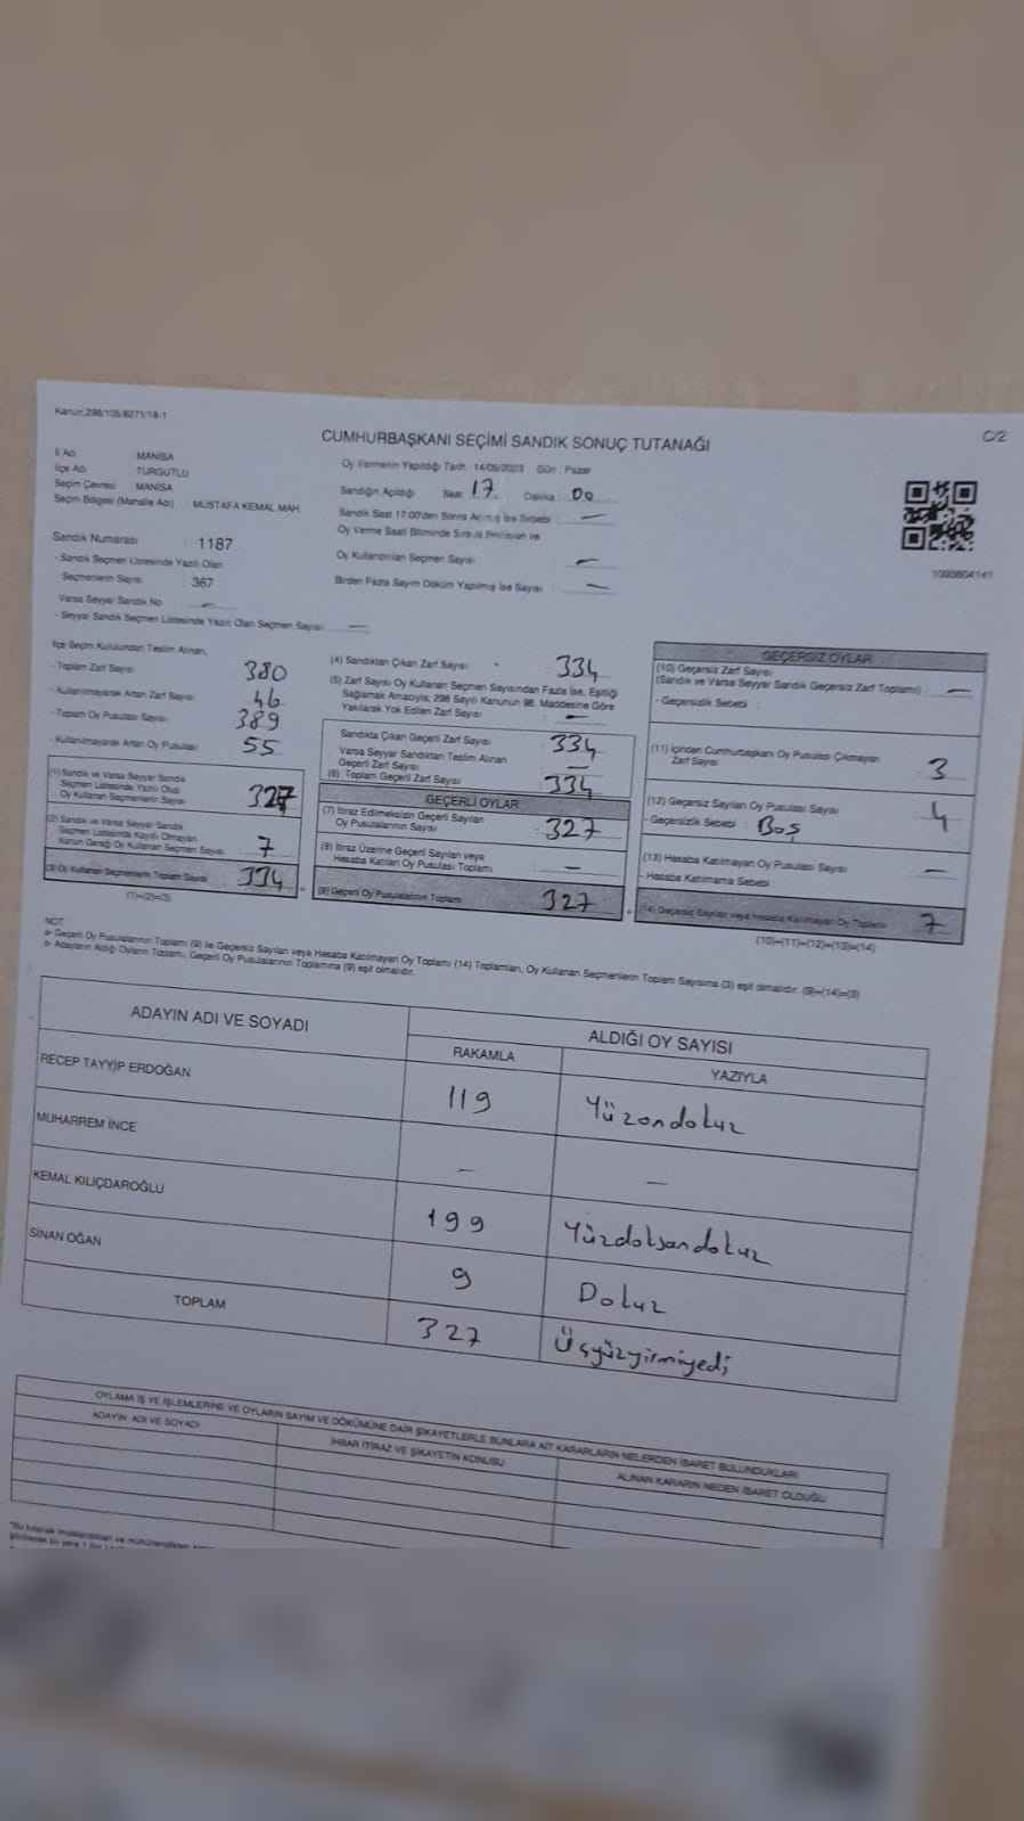 Kanun:298/105,6271/18-1
C/2
CUMHURBAŞKANI SEÇİMİ SANDIK SONUÇ TUTANAĞI
İl Adı MANİSA
İlçe Adı TURGUTLU
Seçim Çevresi MANİSA
Seçim Bölgesi (Mahalle Adı) MUSTAFA KEMAL MAH.
Oy Vermenin Yapıldığı Tarih : 14/05/2023 Gün : Pazar
Sandığın Açıldığı Saat 17 Dakika 00
Sandık Saat 17:00'den Sonra Açılmış İse Sebebi —
Oy Verme Saati Bitiminde Sırada Bekleyen ve
Oy Kullandırılan Seçmen Sayısı —
Birden Fazla Sayım Döküm Yapılmış İse Sayısı —
Sandık Numarası : 1187
- Sandık Seçmen Listesinde Yazılı Olan
Seçmenlerin Sayısı 367
Varsa Seyyar Sandık No —
- Seyyar Sandık Seçmen Listesinde Yazılı Olan Seçmen Sayısı —
İlçe Seçim Kurulundan Teslim Alınan,
- Toplam Zarf Sayısı 380
- Kullanılmayarak Artan Zarf Sayısı 46
- Toplam Oy Pusulası Sayısı 389
- Kullanılmayarak Artan Oy Pusulası 55
(1) Sandık ve Varsa Seyyar Sandık
Seçmen Listesinde Yazılı Olup
Oy Kullanan Seçmenlerin Sayısı 327
(2) Sandık ve Varsa Seyyar Sandık
Seçmen Listesinde Kayıtlı Olmayan
Kanun Gereği Oy Kullanan Seçmen Sayısı 7
(3) Oy Kullanan Seçmenlerin Toplam Sayısı 334
(1)+(2)=(3)
(4) Sandıktan Çıkan Zarf Sayısı 334
(5) Zarf Sayısı Oy Kullanan Seçmen Sayısından Fazla İse, Eşitliği
Sağlamak Amacıyla; 298 Sayılı Kanunun 98. Maddesine Göre
Yakılarak Yok Edilen Zarf Sayısı —
Sandıkta Çıkan Geçerli Zarf Sayısı 334
Varsa Seyyar Sandıktan Teslim Alınan
Geçerli Zarf Sayısı —
(6) Toplam Geçerli Zarf Sayısı 334
GEÇERLİ OYLAR
(7) İtiraz Edilmeksizin Geçerli Sayılan
Oy Pusulalarının Sayısı 327
(8) İtiraz Üzerine Geçerli Sayılan veya
Hesaba Katılan Oy Pusulası Toplamı —
(9) Geçerli Oy Pusulalarının Toplamı 327
GEÇERSİZ OYLAR
(10) Geçersiz Zarf Sayısı
(Sandık ve Varsa Seyyar Sandık Geçersiz Zarf Toplamı) —
- Geçersizlik Sebebi :
(11) İçinden Cumhurbaşkanı Oy Pusulası Çıkmayan
Zarf Sayısı 3
(12) Geçersiz Sayılan Oy Pusulası Sayısı 4
- Geçersizlik Sebebi : Boş
(13) Hesaba Katılmayan Oy Pusulası Sayısı —
- Hesaba Katılmama Sebebi
(14) Geçersiz Sayılan veya Hesaba Katılmayan Oy Toplamı 7
(10)+(11)+(12)+(13)=(14)
NOT
Geçerli Oy Pusulalarının Toplamı (9) ile Geçersiz Sayılan veya Hesaba Katılmayan Oy Toplamı (14) Toplamları, Oy Kullanan Seçmenlerin Toplam Sayısına (3) eşit olmalıdır. (9)+(14)=(3)
Adayların Aldığı Oyların Toplamı, Geçerli Oy Pusulalarının Toplamına (9) eşit olmalıdır.
ADAYIN ADI VE SOYADI
ALDIĞI OY SAYISI
RAKAMLA YAZIYLA
RECEP TAYYİP ERDOĞAN 119 Yüzondokuz
MUHARREM İNCE — —
KEMAL KILIÇDAROĞLU 199 Yüzdoksandokuz
SİNAN OĞAN 9 Dokuz
TOPLAM 327 Üçyüzyirmiyedi
OYLAMA İŞ VE İŞLEMLERİNE VE OYLARIN SAYIM VE DÖKÜMÜNE DAİR ŞİKAYETLERLE BUNLARA AİT KARARLARIN NELERDEN İBARET BULUNDUKLARI
ADAYIN ADI VE SOYADI
İHBAR İTİRAZ VE ŞİKAYETİN KONUSU
ALINAN KARARIN NEDEN İBARET OLDUĞU